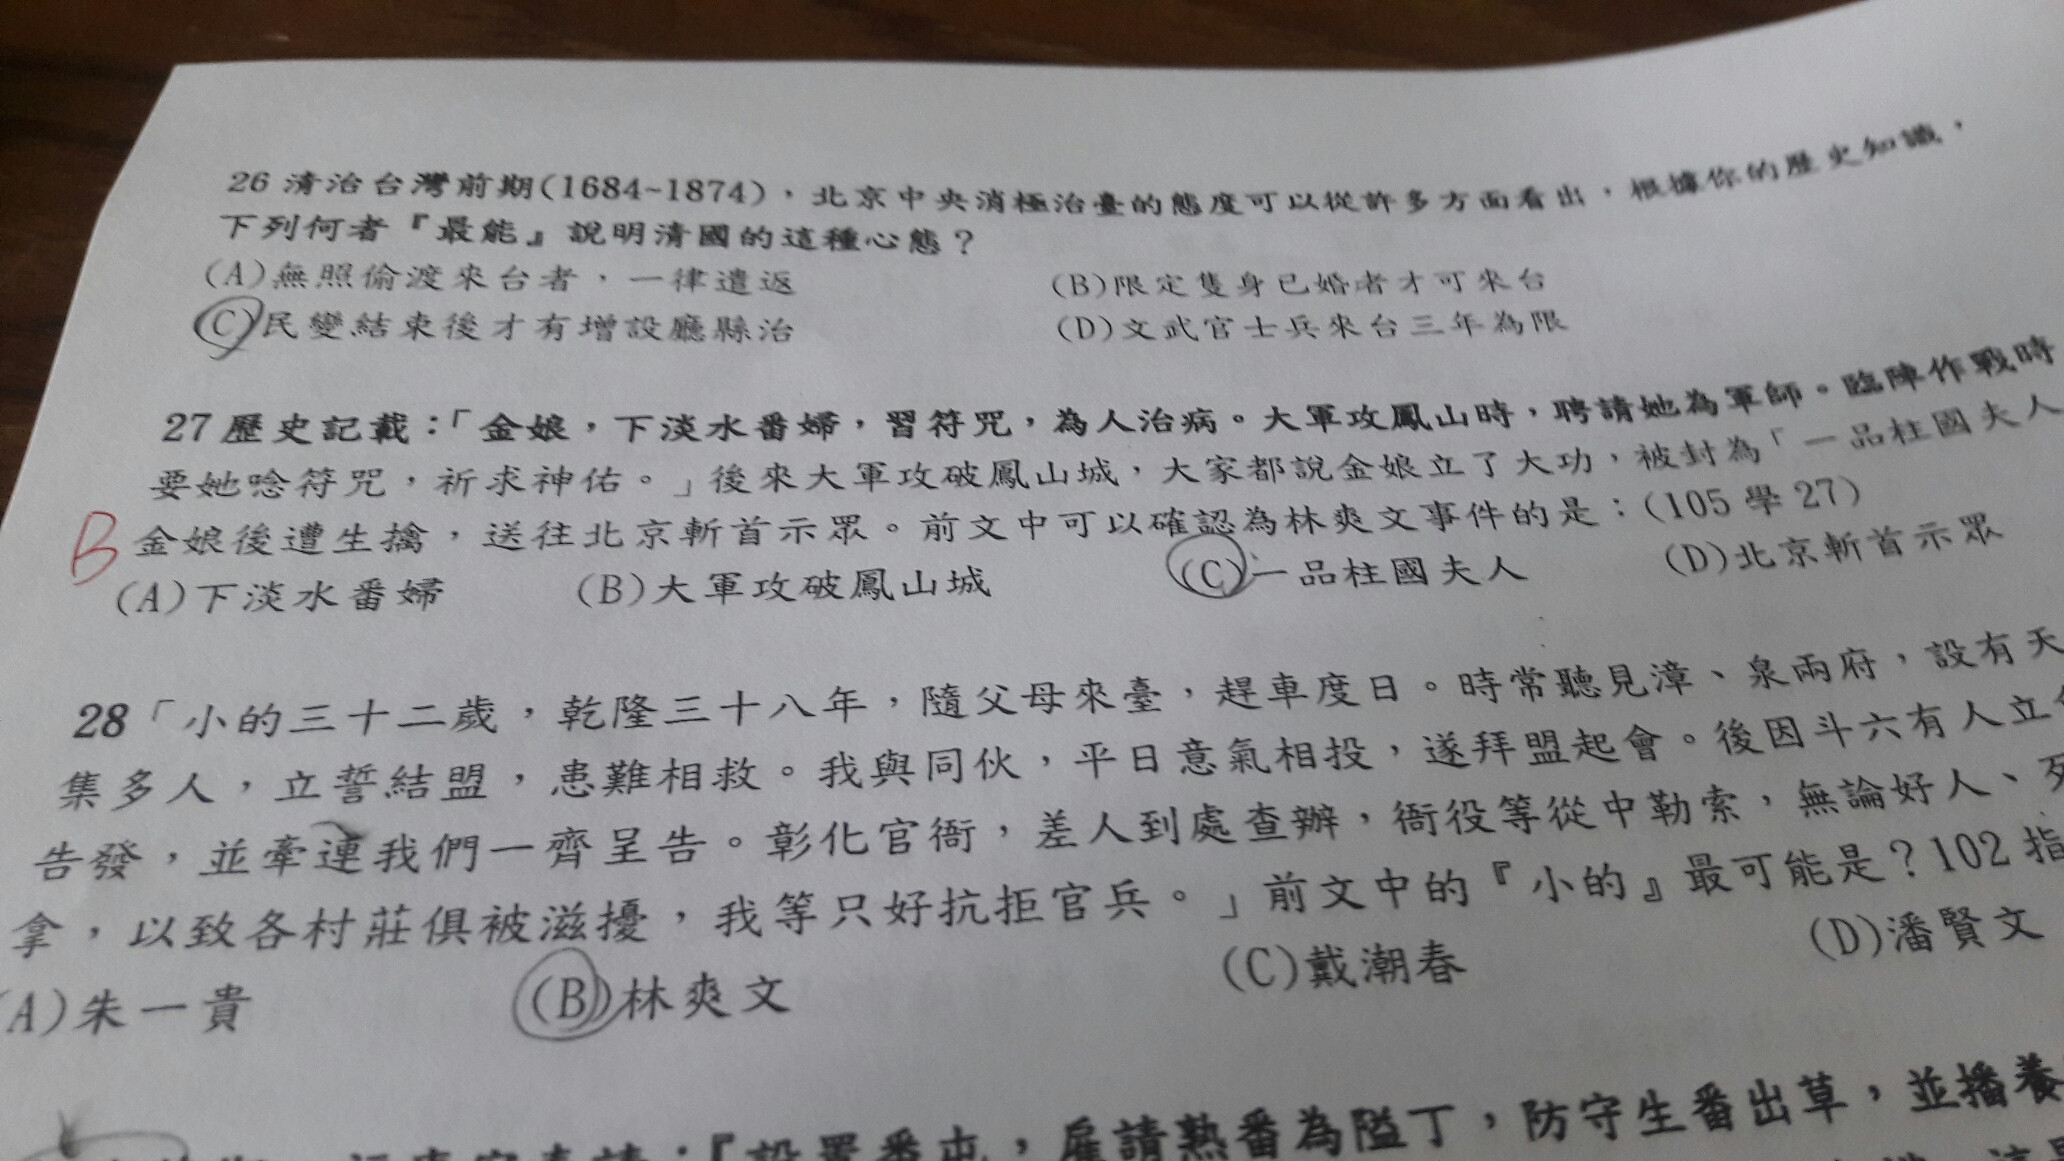 26 清治台灣前期(1684~1874)，北京中央消極治臺的態度可以從許多方面看出，根據你的歷史知識，
下列何者『最能』說明清國的這種心態？
(A)無照偷渡來台者，一律遣返 (B)限定隻身已婚者才可來台
(C)民變結束後才有增設廳縣治 (D)文武官士兵來台三年為限
27 歷史記載：「金娘，下淡水番婦，習符咒，為人治病。大軍攻鳳山時，聘請她為軍師。臨陣作戰時
要她唸符咒，祈求神佑。」後來大軍攻破鳳山城，大家都說金娘立了大功，被封為「一品柱國夫人
B 金娘後遭生擒，送往北京斬首示眾。前文中可以確認為林爽文事件的是：(105 學 27)
(A)下淡水番婦 (B)大軍攻破鳳山城 (C)一品柱國夫人 (D)北京斬首示眾
28「小的三十二歲，乾隆三十八年，隨父母來臺，趕車度日。時常聽見漳、泉兩府，設有天
集多人，立誓結盟，患難相救。我與同伙，平日意氣相投，遂拜盟起會。後因斗六有人立
告發，並牽連我們一齊呈告。彰化官衙，差人到處查辦，衙役等從中勒索，無論好人、
拿，以致各村莊俱被滋擾，我等只好抗拒官兵。」前文中的『小的』最可能是？102 指
(A)朱一貴 (B)林爽文 (C)戴潮春 (D)潘賢文
：『設置番屯，雇請熟番為隘丁，防守生番出草，並播養